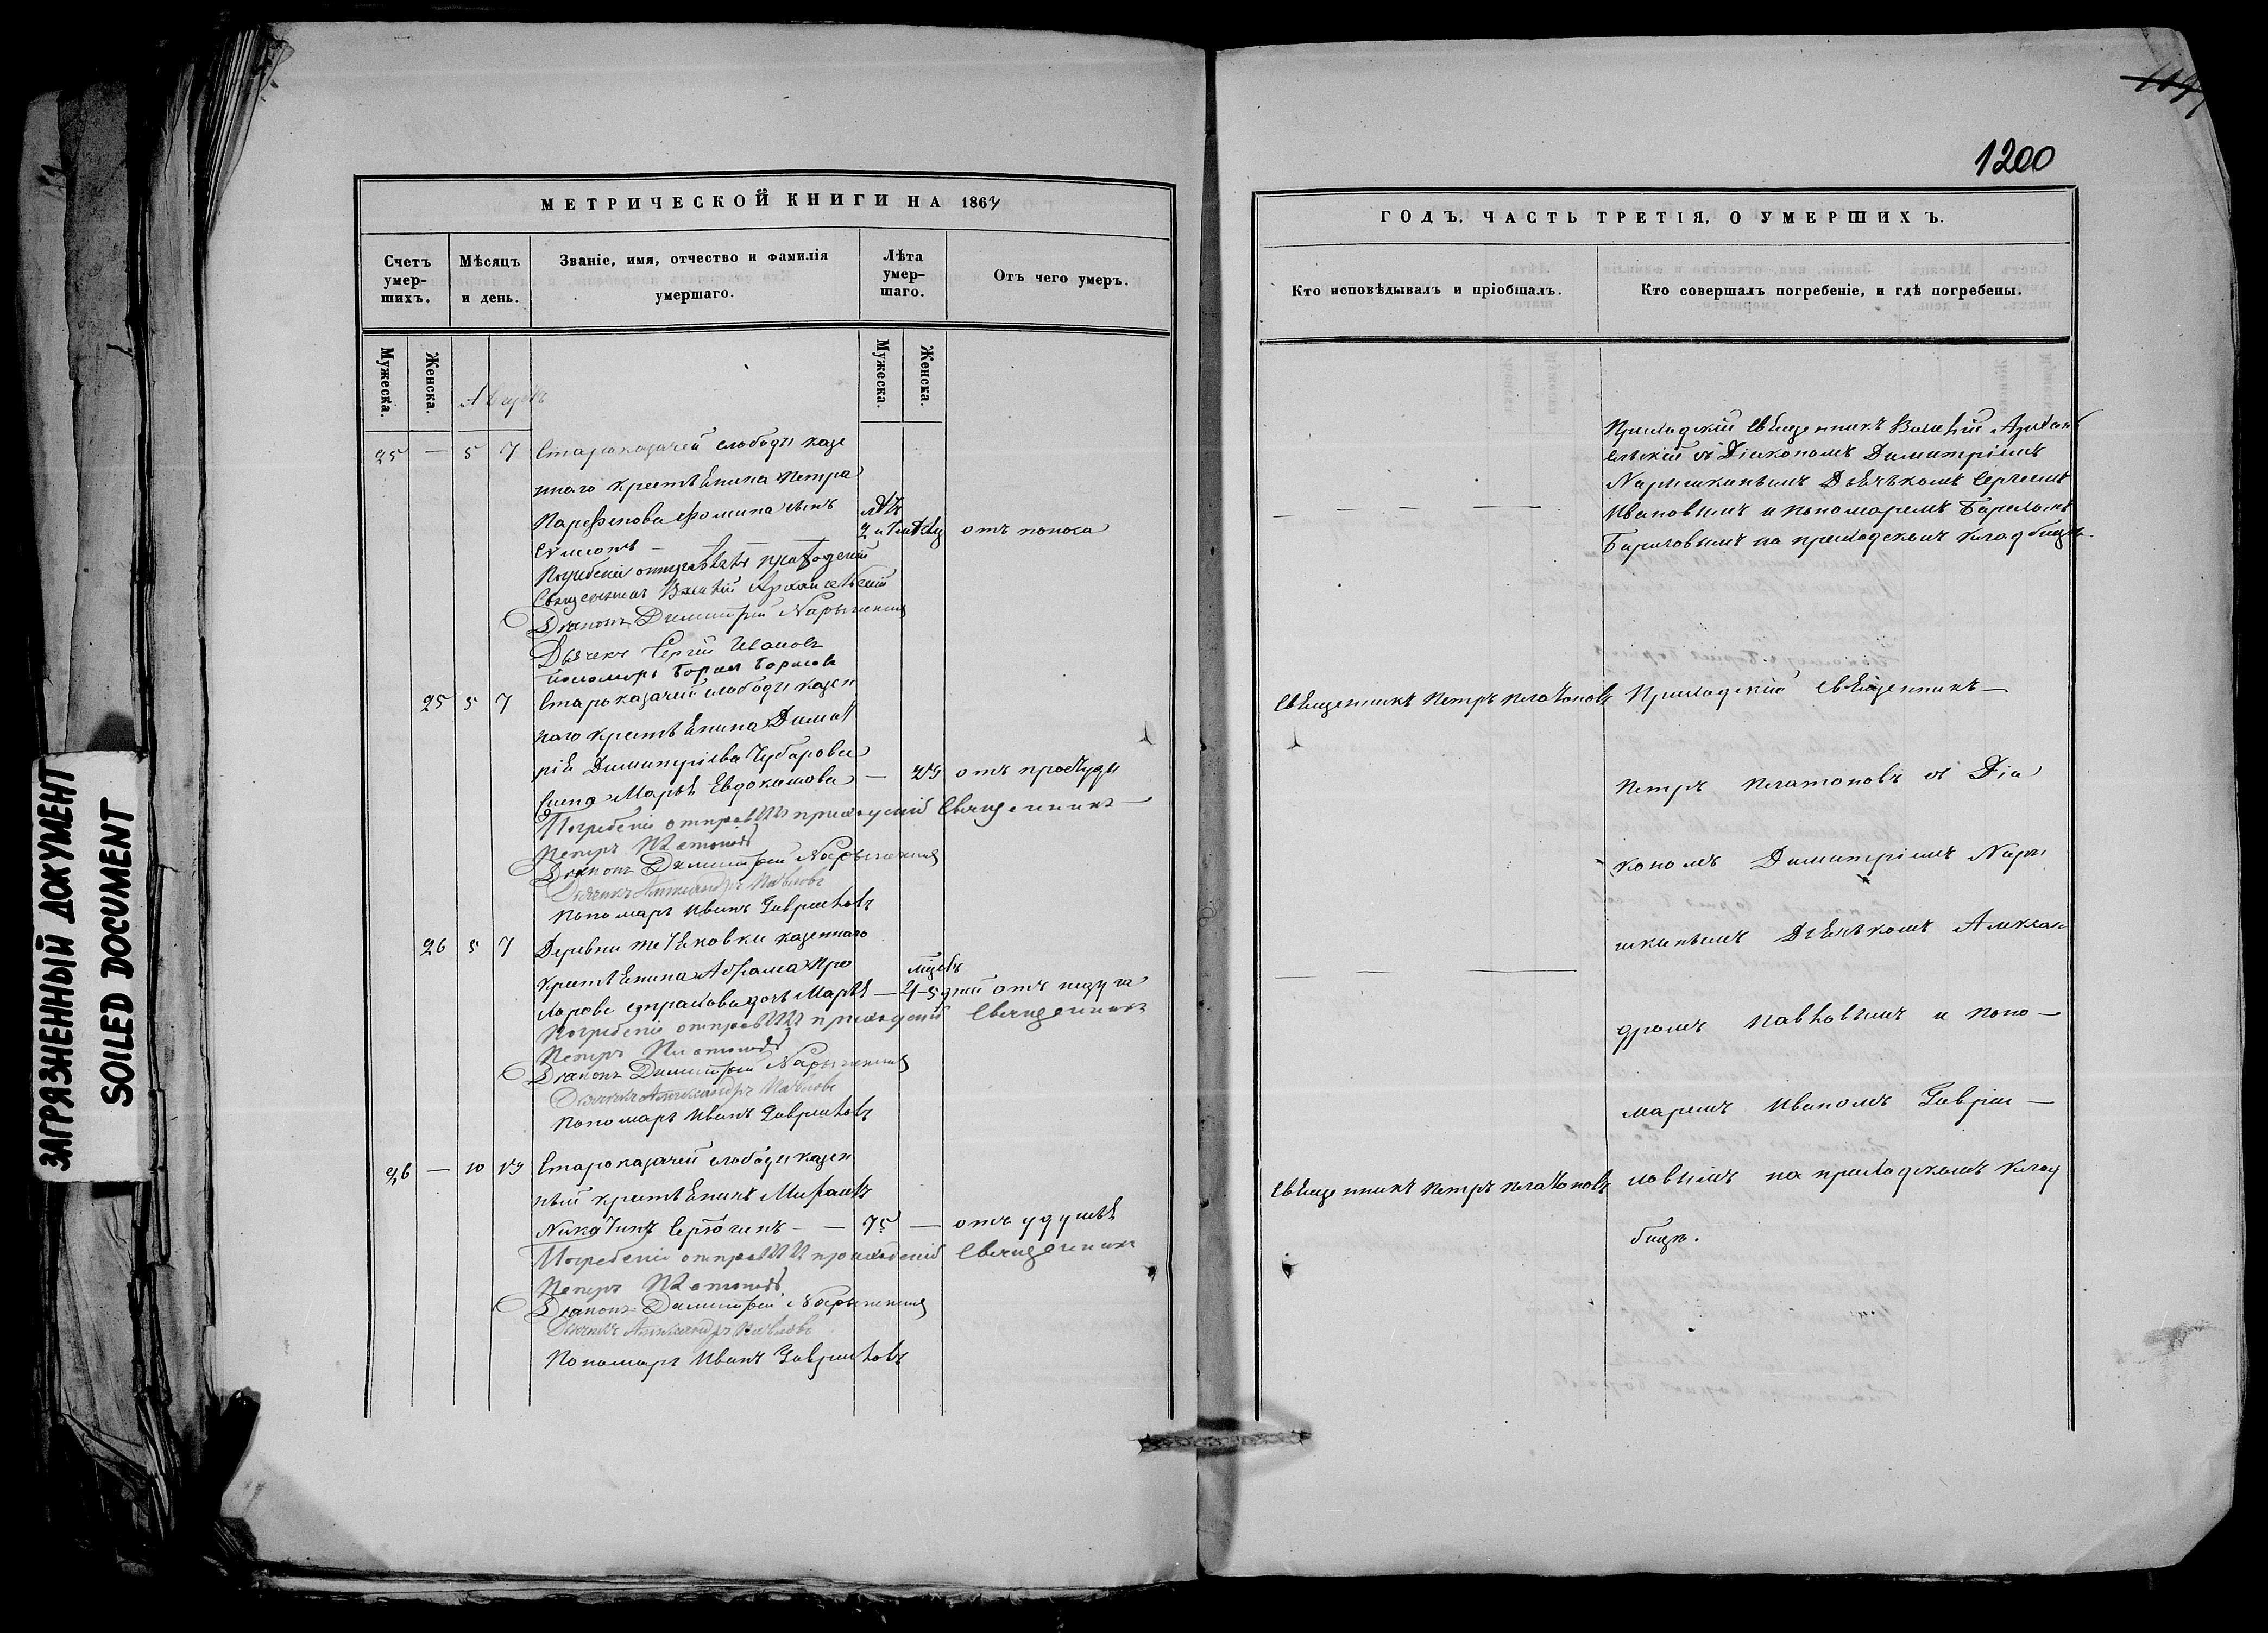 ЗАГРЯЗНЕННЫЙ ДОКУМЕНТ
SOILED DOCUMENT
МЕТРИЧЕСКОЙ КНИГИ НА 1864
Счетъ умер-шихъ.
Мѣсяцъ и день.
Званіе, имя, отчество и фамилія умершаго.
Лѣта умер-шаго.
Отъ чего умеръ.
Мужеска.
Женска.
Мужеска.
Женска.
Августъ
25 — 5 7 Староказачей слободы казе
ннаго крестьянина Петра
Парфенова Фомина сынъ
Симеонъ — 2 и 7 мѣсяц отъ поноса
Погребеніе отправлялъ приходскій
Священникъ Василій Архангельскій
Діаконъ Димитрій Нарышкинъ
Дьячекъ Сергій Ивановъ
Пономарь Борисъ Борисовъ
25 5 7 Староказачей слободы казен
наго крестьянина Димит
рія Димитріева Чубарова
жена Марья Евдокимова — 29 отъ простуды
Погребеніе отправлялъ приходскій Священникъ
Петръ Платоновъ
Діаконъ Димитрій Нарышкинъ
Дьячекъ Александръ Павловъ
Пономарь Иванъ Гавриловъ
26 5 7 Деревни казеннаго
крестьянина Абрама Про
хорова Страхова дочь Марья — 5 дней отъ
Погребеніе отправлялъ приходскій Священникъ
Петръ Платоновъ
Діаконъ Димитрій Нарышкинъ
Дьячекъ Александръ Павловъ
Пономарь Иванъ Гавриловъ
26 — 10 Староказачей слободы казен
ный крестьянинъ
Никитинъ Серюгинъ — 75 — отъ удушья
Погребеніе отправлялъ приходскій Священникъ
Петръ Платоновъ
Діаконъ Димитрій Нарышкинъ
Дьячекъ Александръ Павловъ
Пономарь Иванъ Гавриловъ
1200
ГОДЪ, ЧАСТЬ ТРЕТІЯ, О УМЕРШИХЪ.
Кто исповѣдывалъ и пріобщалъ.
Кто совершалъ погребеніе, и гдѣ погребены.
Приходскій Священникъ Василій Архан
ельскій съ Діакономъ Димитріемъ
Нарышкинымъ Дьячькомъ Сергеемъ
Ивановымъ и пономаремъ Борисомъ
Борисовымъ на приходскомъ кладбищѣ.
Священникъ Петръ Платоновъ
Приходскій Священникъ —
Петръ Платоновъ съ Діа
кономъ Димитріемъ Нары
шкинымъ Дьячькомъ Алексан
дромъ Павловымъ и Поно —
маремъ Иваномъ Гаври —
Священникъ Петръ Платоновъ
ловымъ на приходскомъ клад
бищѣ.